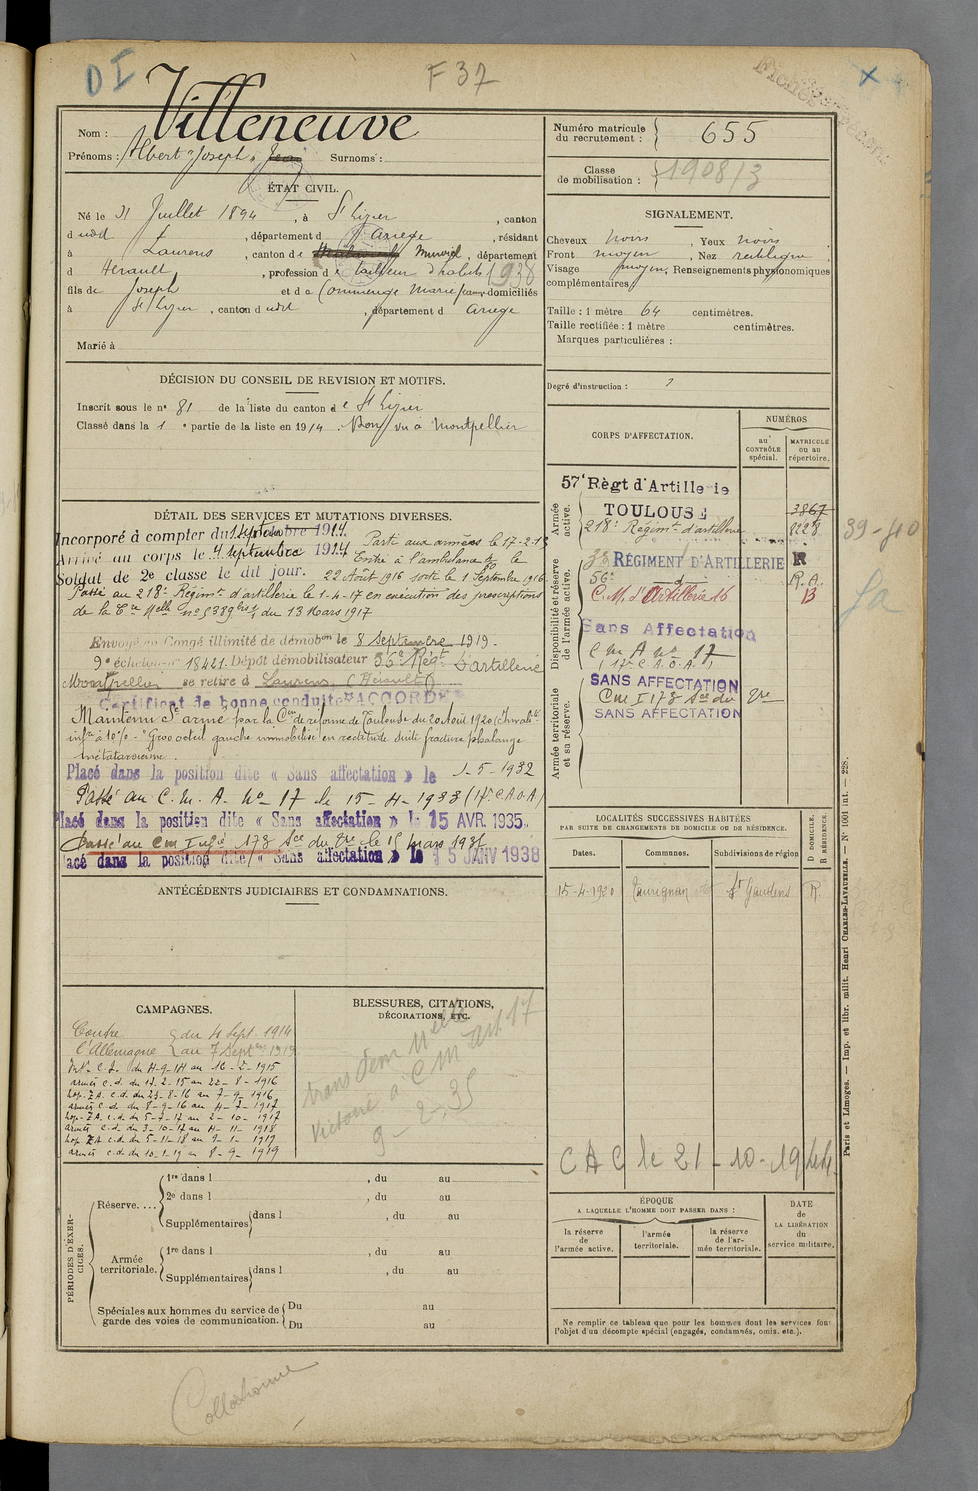 D I
F 37
X
Villeneuve
Nom :
Prénoms : Albert Joseph Jean Surnoms :
ÉTAT CIVIL.
Né le 31 Juillet 1894, à St Lizier, canton
d udit, département d Ariège, résidant
à Laurens, canton de Murviel, département
d Hérault, profession de tailleur d'habits 1938
fils de Joseph et de Commenge Marie Jeanne domiciliés
à St Lizier, canton d udit, département d Ariège
Marié à
DÉCISION DU CONSEIL DE REVISION ET MOTIFS.
Inscrit sous le n° 81 de la liste du canton de St Lizier
Classé dans la 1e partie de la liste en 1914. Bon, vu à Montpellier
DÉTAIL DES SERVICES ET MUTATIONS DIVERSES.
Incorporé à compter du 1 septembre 1914. Parti aux armées le 17-2-15
Arrivé au corps le 4 septembre 1914 Entré à l'ambulance le
Soldat de 2e classe le dit jour. 22 Août 1916 sorti le 1 Septembre 1916
Passé au 218e Régimt d'artillerie le 1-4-17 en exécution des prescriptions
de la Cre Melle n° 5389 du 13 Mars 1917
Envoyé en Congé illimité de démobon le 8 Septembre 1919.
9e échelon n° 18421. Dépôt démobilisateur 56e Régt d'artillerie
Montpellier se retire à Laurens (Hérault)
Certificat de bonne conduite "ACCORDÉ"
Maintenu Sce armé par la Con de réforme de Toulouse du 20 Août 1920 (Invalté
infre à 10% - Gros orteil gauche immobilisé en rectitude suite fracture phalange
métatarsienne.
Placé dans la position dite « Sans affectation » le 1-5-1932
Passé au C. M. A. N° 17 le 15-4-1933 (17e C.A.O.A)
Placé dans la position dite « Sans affectation » le 15 AVR 1935.
Passé au Cm Infie 173 Sce du Vre le 15 mars 1937
Placé dans la position dite « Sans affectation » le 15 JANV 1938
ANTÉCÉDENTS JUDICIAIRES ET CONDAMNATIONS.
CAMPAGNES.
Contre du 4 Sept. 1914
l'Allemagne au 7 Septbre 1919
Int. C.S. du 4-9-14 au 16-2-1915
armées c.d. du 17-2-15 au 22-8-1916
hop. Z.A. c.d. du 23-8-16 au 7-9-1916
armées c.d. du 8-9-16 au 4-7-1917
hop. Z.A. c.d. du 5-7-17 au 2-10-1917
armées c.d. du 3-10-17 au 4-11-1918
hop Z.A. c.d. du 5-11-18 au 9-1-1919
armées c.d. du 10-1-19 au 8-9-1919
BLESSURES, CITATIONS,
DÉCORATIONS, ETC.
trans d'em Nelle
Victoire à C M Art. 17
9-2-35
PÉRIODES D'EXERCICES.
Réserve.... 1re dans l , du au
2e dans l , du au
Supplémentaires dans l , du au
Armée territoriale. 1re dans l , du au
Supplémentaires dans l , du au
Spéciales aux hommes du service de garde des voies de communication. Du au
Du au
Numéro matricule du recrutement : 655
Classe de mobilisation : 1908/3
SIGNALEMENT.
Cheveux noirs, Yeux noirs
Front moyen, Nez rectiligne
Visage moyen, Renseignements physionomiques
complémentaires
Taille : 1 mètre 64 centimètres.
Taille rectifiée : 1 mètre centimètres.
Marques particulières :
Degré d'instruction : 2
CORPS D'AFFECTATION.
NUMÉROS
au CONTRÔLE spécial.
MATRICULE ou au répertoire.
Armée active.
57e Règt d'Artillerie
TOULOUSE 3867
218e Régimt d'artillerie 8228
Disponibilité et réserve de l'armée active.
RÉGIMENT D'ARTILLERIE R
56e R.A.
C. M. d'Artillerie 16 13
Sans Affectation
C M A N° 17
(17e C.A.O.A.)
Armée territoriale et sa réserve.
SANS AFFECTATION
Cm I 173 Sce du Vre
SANS AFFECTATION
39-40
LOCALITÉS SUCCESSIVES HABITÉES
PAR SUITE DE CHANGEMENTS DE DOMICILE OU DE RÉSIDENCE.
Dates. Communes. Subdivisions de région D DOMICILE. R RÉSIDENCE.
15-4-1920 Taurignan St Gaudens R.
CAC le 21-10-1944
ÉPOQUE
A LAQUELLE L'HOMME DOIT PASSER DANS :
la réserve de l'armée active.
l'armée territoriale.
la réserve de l'armée territoriale.
DATE de LA LIBÉRATION du service militaire.
Ne remplir ce tableau que pour les hommes dont les services font
l'objet d'un décompte spécial (engagés, condamnés, omis, etc.).
Paris et Limoges. — Imp. et libr. milit. Henri CHARLES-LAVAUZELLE. — N° 1001 int. — 228.
Collationné